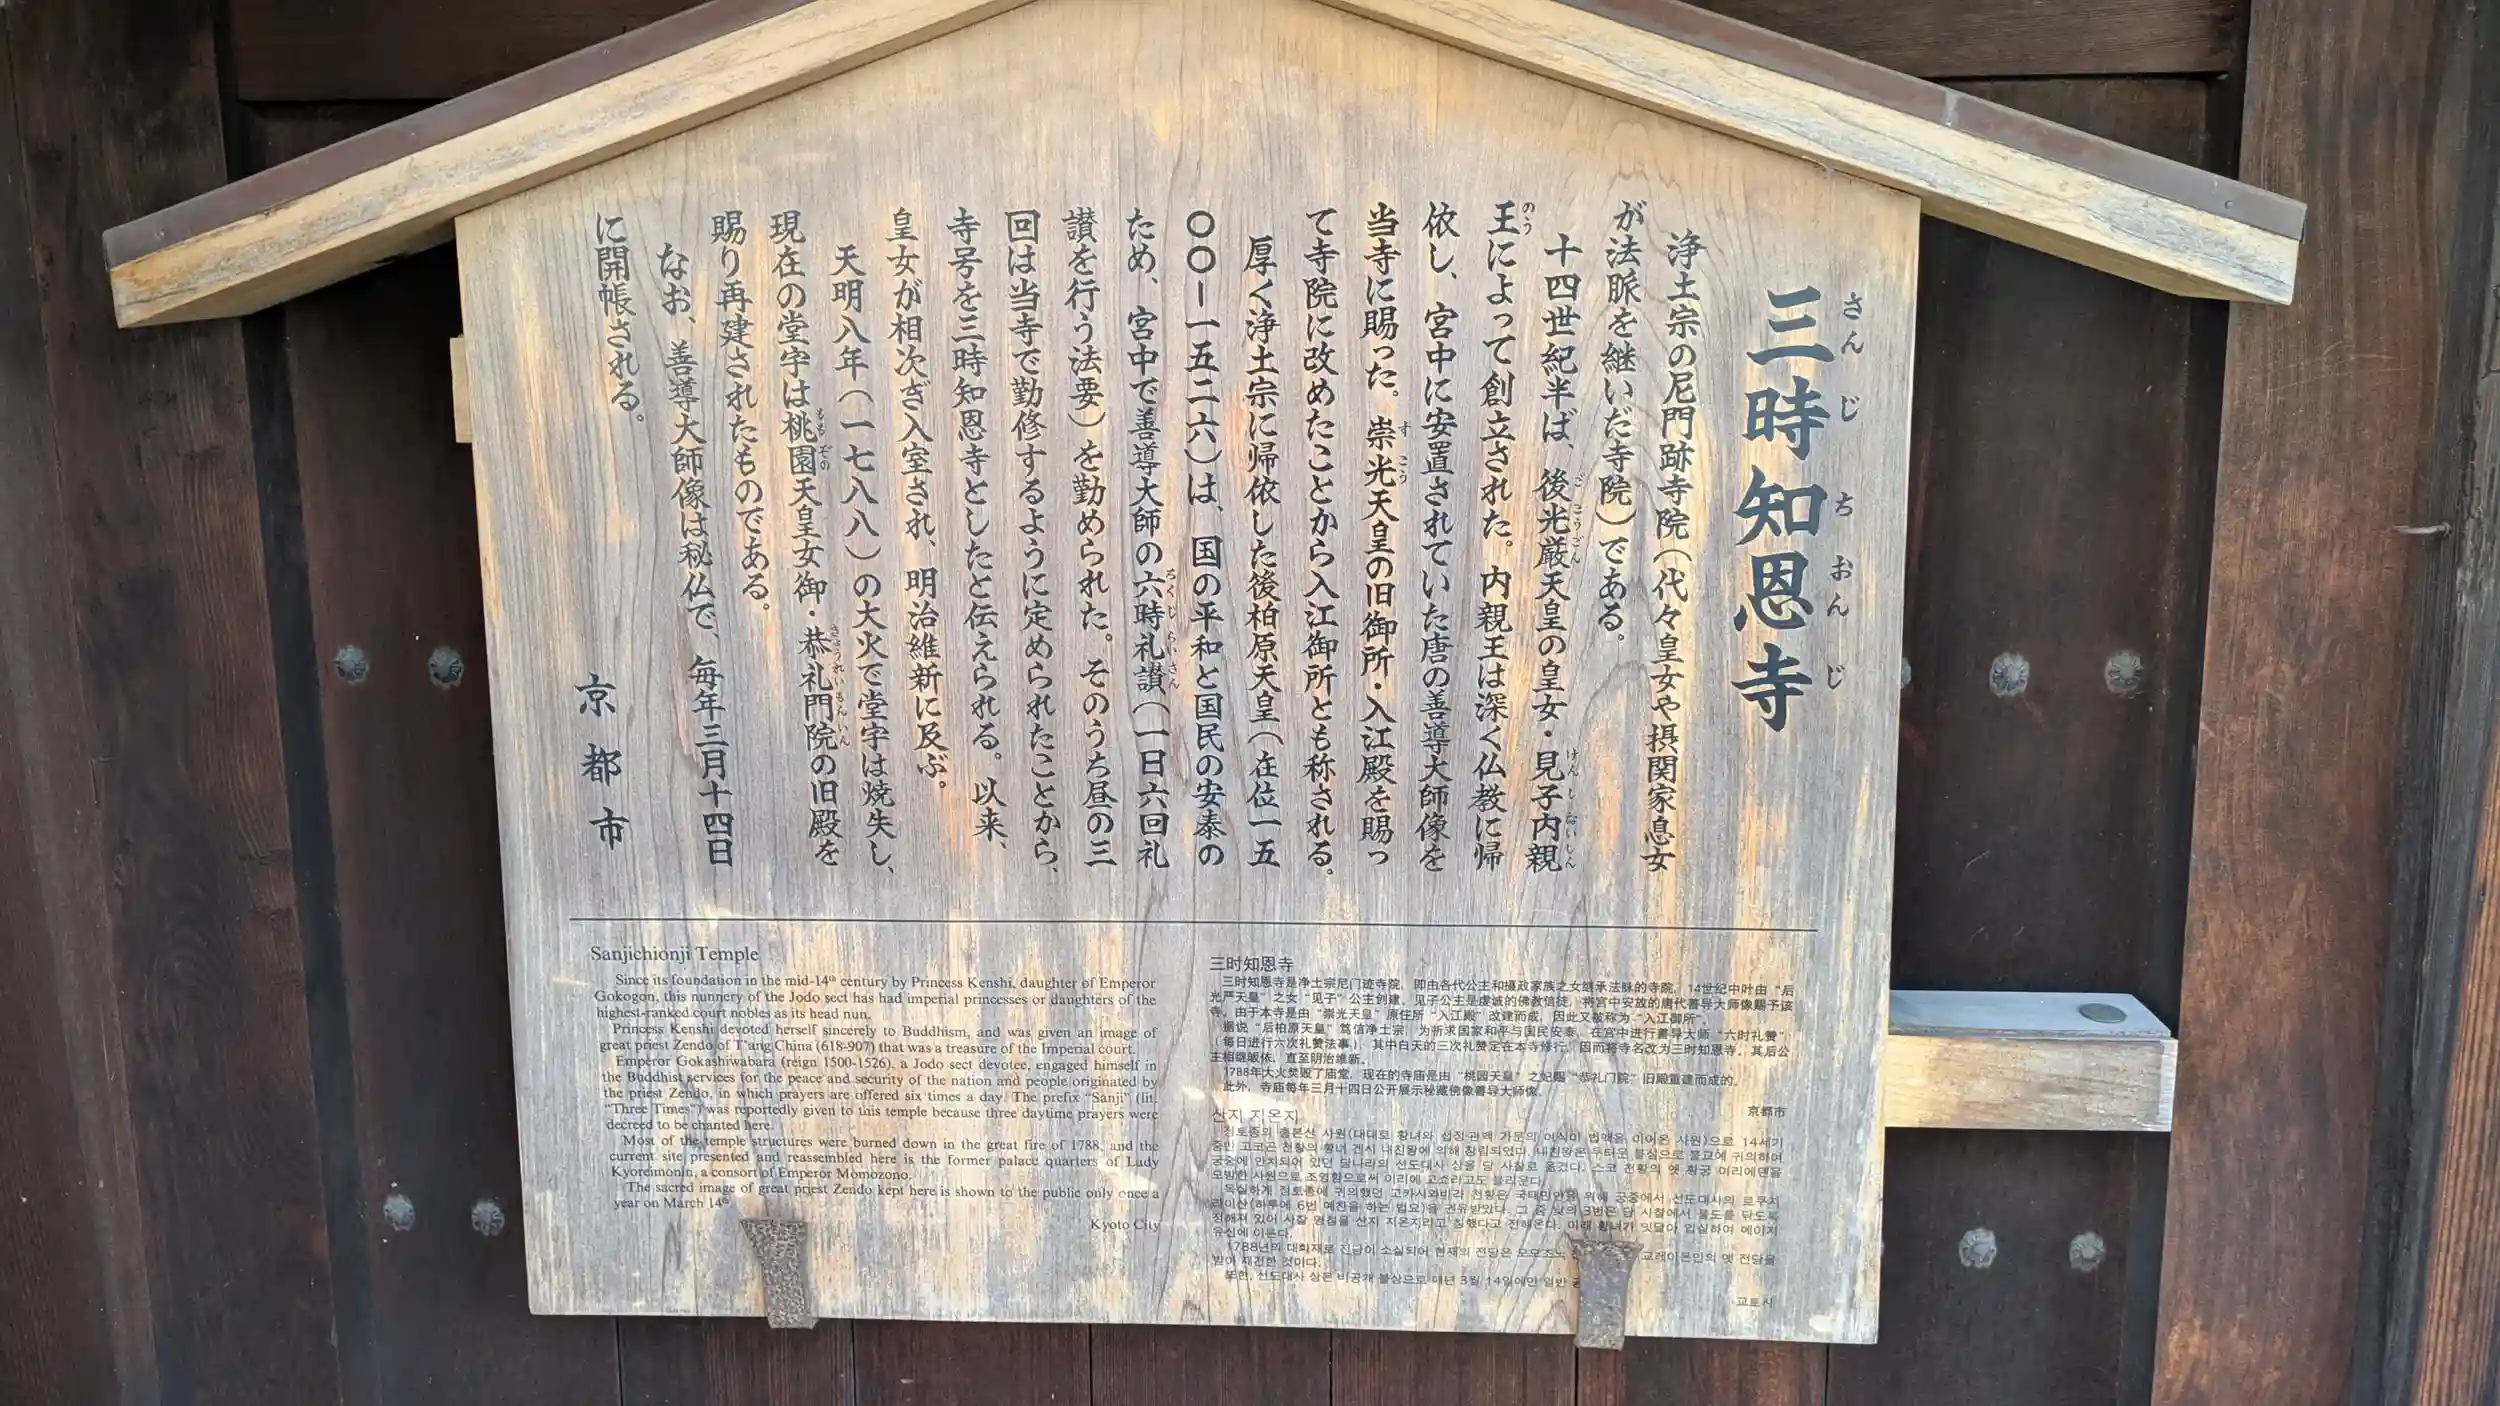 三時知恩寺
さんじちおんじ
浄土宗の尼門跡寺院（代々皇女や摂関家息女
が法脈を継いだ寺院）である。
十四世紀半ば、後光厳天皇の皇女・見子内親
王によって創立された。内親王は深く仏教に帰
依し、宮中に安置されていた唐の善導大師像を
当寺に賜った。崇光天皇の旧御所・入江殿を賜っ
て寺院に改めたことから入江御所とも称される。
厚く浄土宗に帰依した後柏原天皇（在位一五
〇〇ー一五二六）は、国の平和と国民の安泰の
ため、宮中で善導大師の六時礼讃（一日六回礼
讃を行う法要）を勤められた。そのうち昼の三
回は当寺で勤修するように定められたことから、
寺号を三時知恩寺としたと伝えられる。以来、
皇女が相次ぎ入室され、明治維新に及ぶ。
天明八年（一七八八）の大火で堂宇は焼失し、
現在の堂宇は桃園天皇女御・恭礼門院の旧殿を
賜り再建されたものである。
なお、善導大師像は秘仏で、毎年三月十四日
に開帳される。
京都市
Sanjichionji Temple
Since its foundation in the mid-14th century by Princess Kenshi, daughter of Emperor
Gokogon, this nunnery of the Jodo sect has had imperial princesses or daughters of the
highest-ranked court nobles as its head nun.
Princess Kenshi devoted herself sincerely to Buddhism, and was given an image of
great priest Zendo of T'ang China (618-907) that was a treasure of the Imperial court.
Emperor Gokashiwabara (reign 1500-1526), a Jodo sect devotee, engaged himself in
the Buddhist services for the peace and security of the nation and people originated by
the priest Zendo, in which prayers are offered six times a day. The prefix “Sanji” (lit.
“Three Times”) was reportedly given to this temple because three daytime prayers were
decreed to be chanted here.
Most of the temple structures were burned down in the great fire of 1788, and the
current site presented and reassembled here is the former palace quarters of Lady
Kyoreimonin, a consort of Emperor Momozono.
The sacred image of great priest Zendo kept here is shown to the public only once a
year on March 14th.
Kyoto City
三时知恩寺
三时知恩寺是净土宗尼门迹寺院，即由各代公主和摄政家族之女继承法脉的寺院，14世纪中叶由“后
光严天皇”之女“见子”公主创建。见子公主是虔诚的佛教信徒，将宫中安放的唐代善导大师像赐予该
寺。由于本寺是由“崇光天皇”原住所“入江殿”改建而成，因此又被称为“入江御所”。
据说“后柏原天皇”笃信净土宗，为祈求国家和平与国民安泰，在宫中进行善导大师“六时礼赞”
（每日进行六次礼赞法事），其中白天的三次礼赞定在本寺修行，因而将寺名改为三时知恩寺。其后公
主相继皈依，直至明治维新。
1788年大火焚毁了庙堂，现在的寺庙是由“桃园天皇”之妃赐“恭礼门院”旧殿重建而成的。
此外，寺庙每年三月十四日公开展示秘藏佛像善导大师像。
京都市
산지 지온지
정토종의 총본선 사원(대대로 황녀와 섭정·관백 가문의 여식이 법맥을 이어온 사원)으로 14세기
중반 고코곤 천황의 황녀 겐시 내친왕에 의해 창립되었다. 내친왕은 두터운 불심으로 불교에 귀의하여
궁중에 안치되어 있던 당나라의 선도대사 상을 당 사찰로 옮겼다. 스코 천황의 옛 황궁 이리에덴을
사원으로 이리에 고쇼라고도 불리운다.
독실하게 정토종에 귀의했던 고카시와바라 천황은 국태민안을 위해 궁중에서 선도대사의 로쿠지
라이산(하루에 6번 예찬을 하는 법요)을 권유받았다. 그 중 낮의 3번은 당 사찰에서 불도를 닦도록
정해져 있어 사찰 명칭을 산지 지온지라고 칭했다고 전해온다. 황녀가 잇달아 입실하여 메이지
유신에 이른다.
1788년의 대화재로 전당이 소실되어 현재의 전당은 모모조노 교레이몬인의 옛 전당을
받아 재건한 것이다.
또한, 선도대사 상은 비공개 불상으로 매년 3월 14일에만 일반
교토시